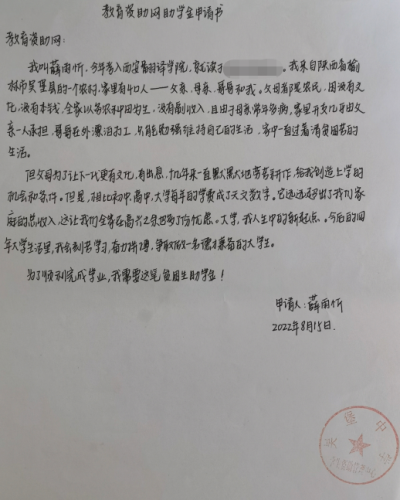 教育资助网助学金申请书
教育资助网:
我叫薛雨忻,今年考入西安翻译学院,就读于 。我来自陕西省榆
林市吴堡县的一个农村,家里有四口人——父亲、母亲、哥哥和我。父母亲是农民,因没有文
化,没有本钱,全家以务农种田为生,没有副收入,且由于母亲常年多病,家里开支几乎由父
亲一人承担,哥哥在外漂泊打工,只能勉强维持自己的生活,家中一直过着清贫困苦的
生活。
但父母为了让下一代更有文化,有出息,几年来一直默默地劳劳耕作,给我创造上学的
机会和条件。但是,相比初中,高中,大学每年的学费成了天文数字。它远远超出了我们家
庭的总收入,这让我们全家在高兴之余也多了份忧愁。大学,我人生中的新起点。今后的四
年大学生活里,我会刻苦学习,奋力拼搏,争取做一名德才兼备的大学生。
为了顺利完成学业,我需要这笔贫困生助学金!
申请人:薛雨忻
2022年8月15日.
吴堡中